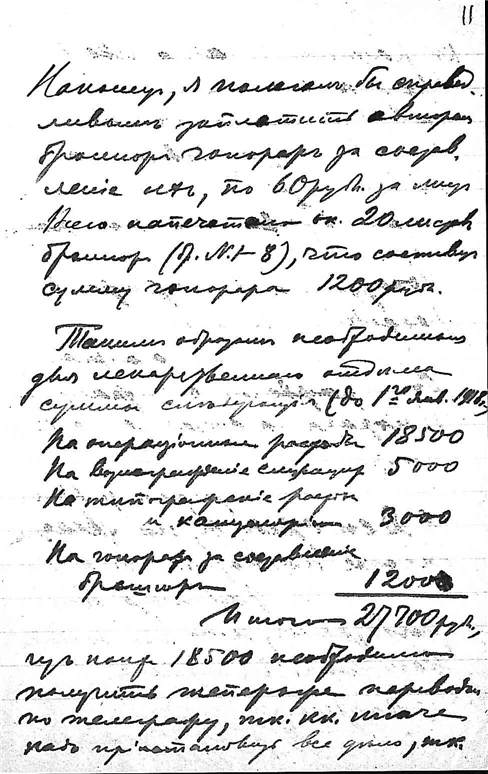 11
Наконецъ, я полагалъ бы справед-
ливымъ заплатить авторамъ
брошюръ гонораръ за состав-
леніе ихъ, по 60 руб. за листъ
Всего напечатано ок. 20 листовъ
брошюръ (№ 1-8), что составитъ
сумму гонорара 1200 руб.
Такимъ образомъ необходимыя
для лекарственнаго отдѣла
суммы (до 1го Янв. 1918.
На операціонные расходы 18500
На вознагражденіе 5000
На типографскіе расходы
и канцелярію 3000
На гонораръ за составленіе
брошюръ 1200
Итого 27700 руб,
18500 необходимо
получить теперь же переводомъ
по телеграфу, т.к. иначе
надо пріостановить все дѣло, т.к.